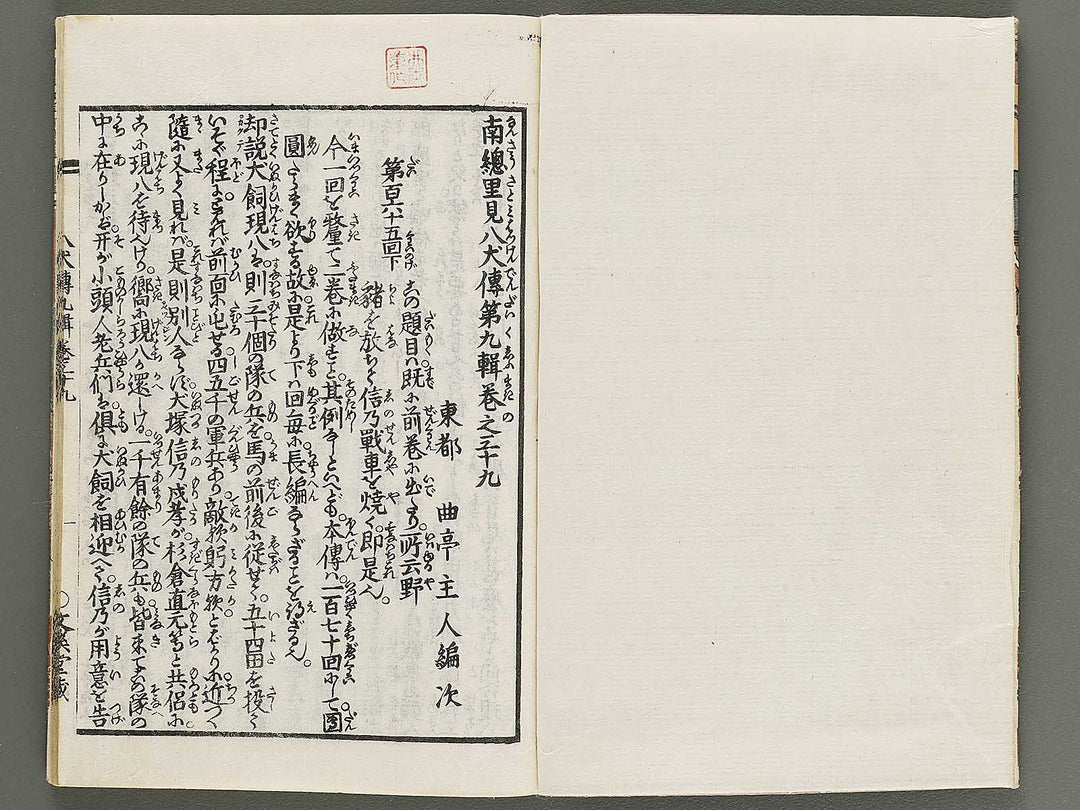 南總里見八犬傳第九輯巻之三十九
東都 曲亭主人編次
第百六十五回下 この題目ハ既に前巻に出たり。所云野
猪を放ちて信乃戰車を焼く。即是也。
今一回を釐て二巻に做すこと。其例なしといへども。本傳ハ一百七十回にして團
圓しまく欲する故に是より下ハ回毎に長編ならざることを得ざる也。
却説犬飼現八ハ。則三十個の隊の兵を馬の前後に従せて。五十四田を投て
いそぐ程に。見れバ前面に屯せる四五千の軍兵あり敵歟躬方歟とばかりに近づく
隨に又よく見れバ。是則別人ならず。犬塚信乃戍孝が杉倉直元等と共侶に
こゝに現八を待へけり。嚮に現八が還しける。一千有餘の隊の兵も皆来てその隊の
中に在りしかバ。并が小頭人老兵們ハ俱に犬飼を相迎へて。信乃が用意を告
八犬傳九輯 巻三十九
一
○文溪堂藏